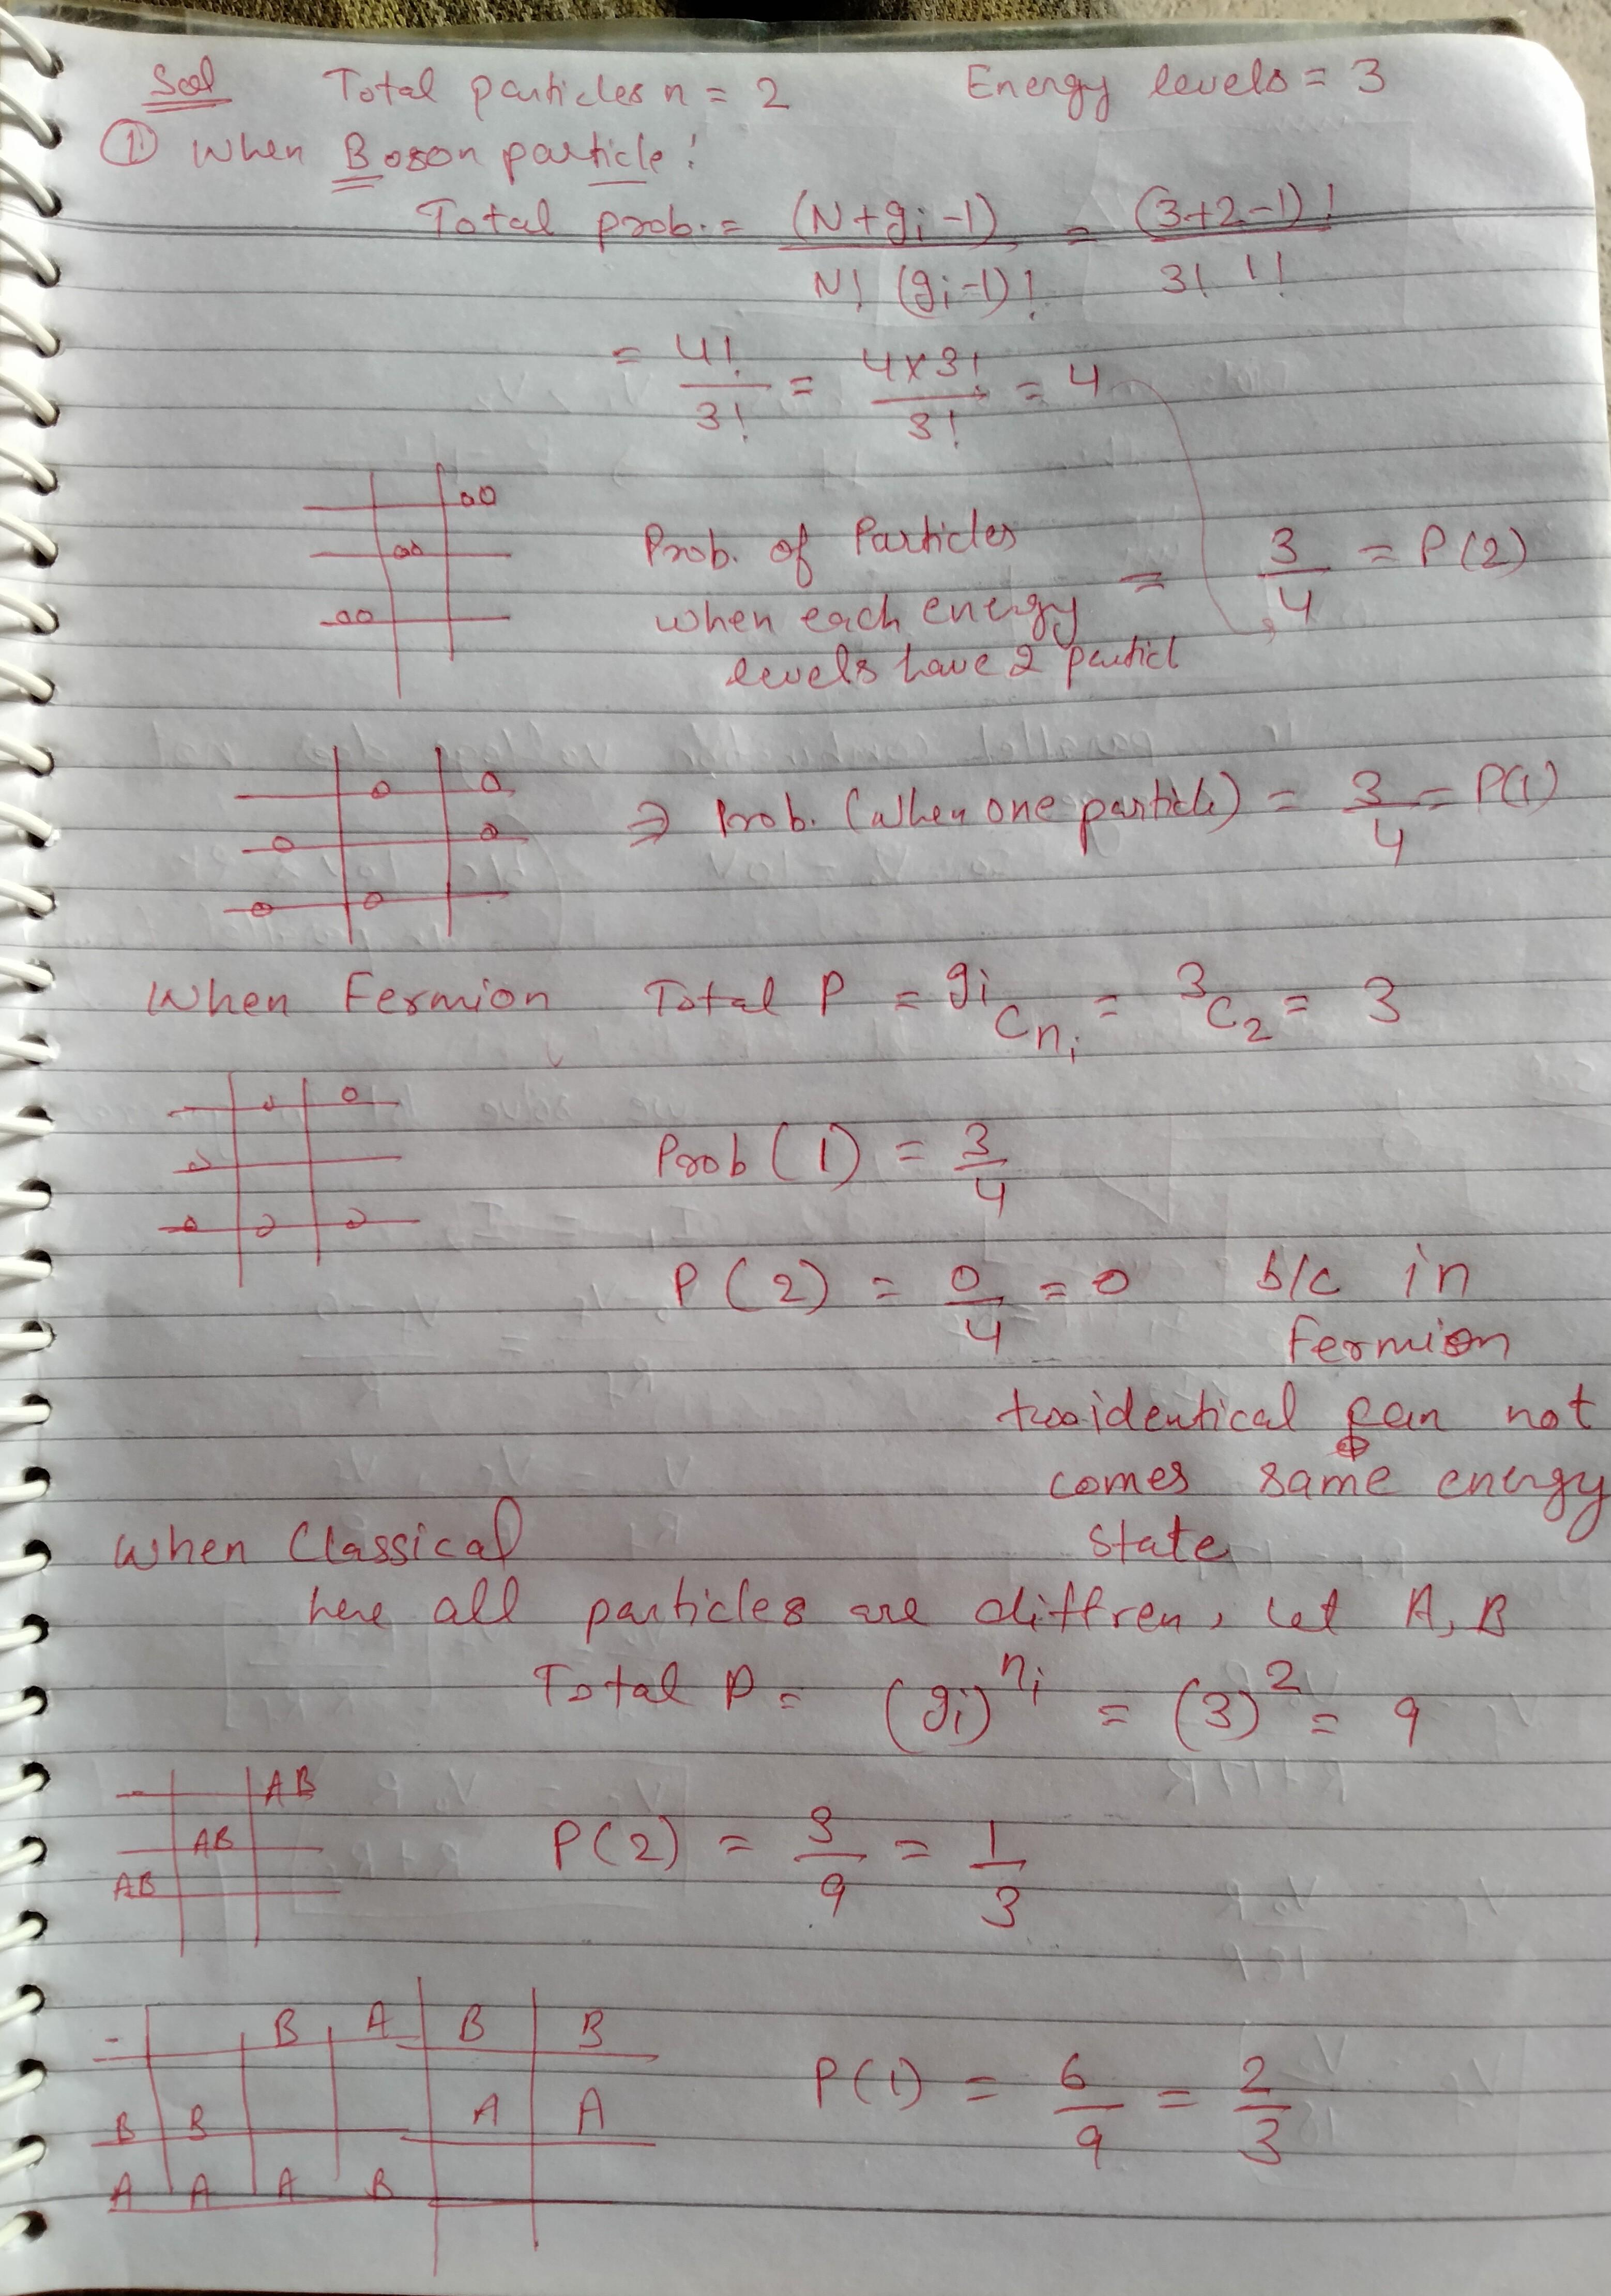 Sol Total particles n = 2 Energy levels = 3
① When Boson particle!
Total prob. = (N+gi-1) / N! (gi-1)! = (3+2-1)! / 3! 1!
= 4! / 3! = 4×3! / 3! = 4
oo
oo
oo
Prob. of Particles
when each energy
levels have 2 particl
= 3/4 = P(2)
o o
o o
o o
⇒ Prob. (when one particle) = 3/4 = P(1)
When Fermion Total P = gi C ni = 3 C 2 = 3
o o
o
o o o
Prob (1) = 3/4
P(2) = 0/4 = 0 b/c in
fermion
two identical can not
comes same energy
state
When Classical
here all particles are diffren, Let A, B
Total P = (gi)^ni = (3)^2 = 9
AB
AB
AB
P(2) = 3/9 = 1/3
- B A B B
B B A A
A A A B
P(1) = 6/9 = 2/3